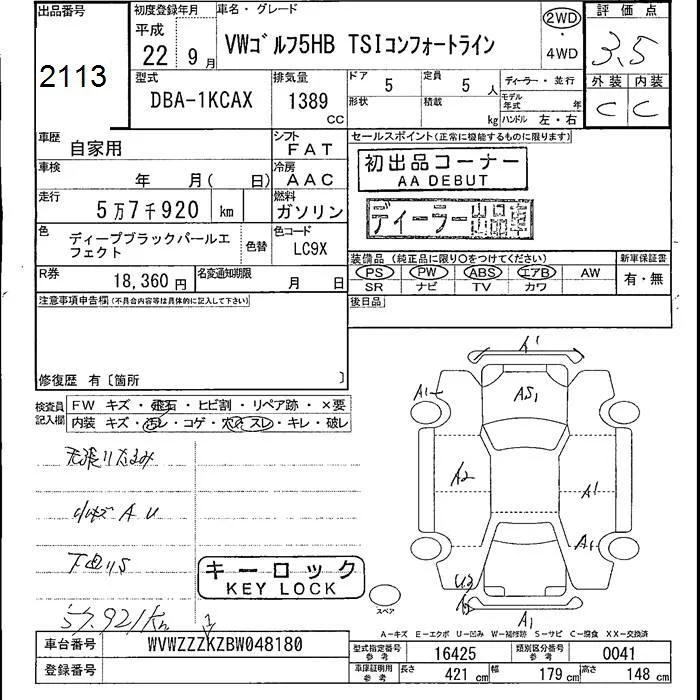 出品番号 初度登録年月 車名・グレード 2WD 評価点
平成
2113 22年 9月 VWゴルフ5HB TSIコンフォートライン ・ 3.5
4WD
型式 排気量 ドア 5 定員 5人 ディーラー・並行 外装 内装
DBA-1KCAX 1389cc 形状 積載 kg モデル年式 年 C C
ハンドル 左・右
車歴 自家用 シフト FAT セールスポイント(正常に機能するものに限ります)
車検 年 月( 日) 冷房 AAC 初出品コーナー
AA DEBUT
走行 5万7千920 km 燃料 ガソリン ディーラー出品車
色 ディープブラックパールエフェクト 色替 色コード LC9X
装備品(純正品に限り○をつけてください) 新車保証書
R券 18,360円 名変通知期限 月 日 PS PW ABS エアB AW 有・無
SR ナビ TV カワ
注意事項申告欄(不具合内容等は具体的に記入して下さい) 後日品
修復歴 有〔箇所 〕
検査員記入欄 FW キズ・飛石・ヒビ割・リペア跡・×要
内装 キズ・汚レ・コゲ・穴・スレ・キレ・破レ
天張りたるみ
小キズ A U
下回りS
57.921km
A1
A1 AS1
A2 A1
A1
U3
A1
キーロック
KEY LOCK
スペア
A-キズ E-エクボ U-凹み W-補修跡 S-サビ C-腐食 XX-交換済
車台番号 WVWZZZKZBW048180 型式指定番号 参考 16425 類別区分番号 参考 0041
登録番号 車庫証明用 参考 長さ 421cm 幅 179cm 高さ 148cm